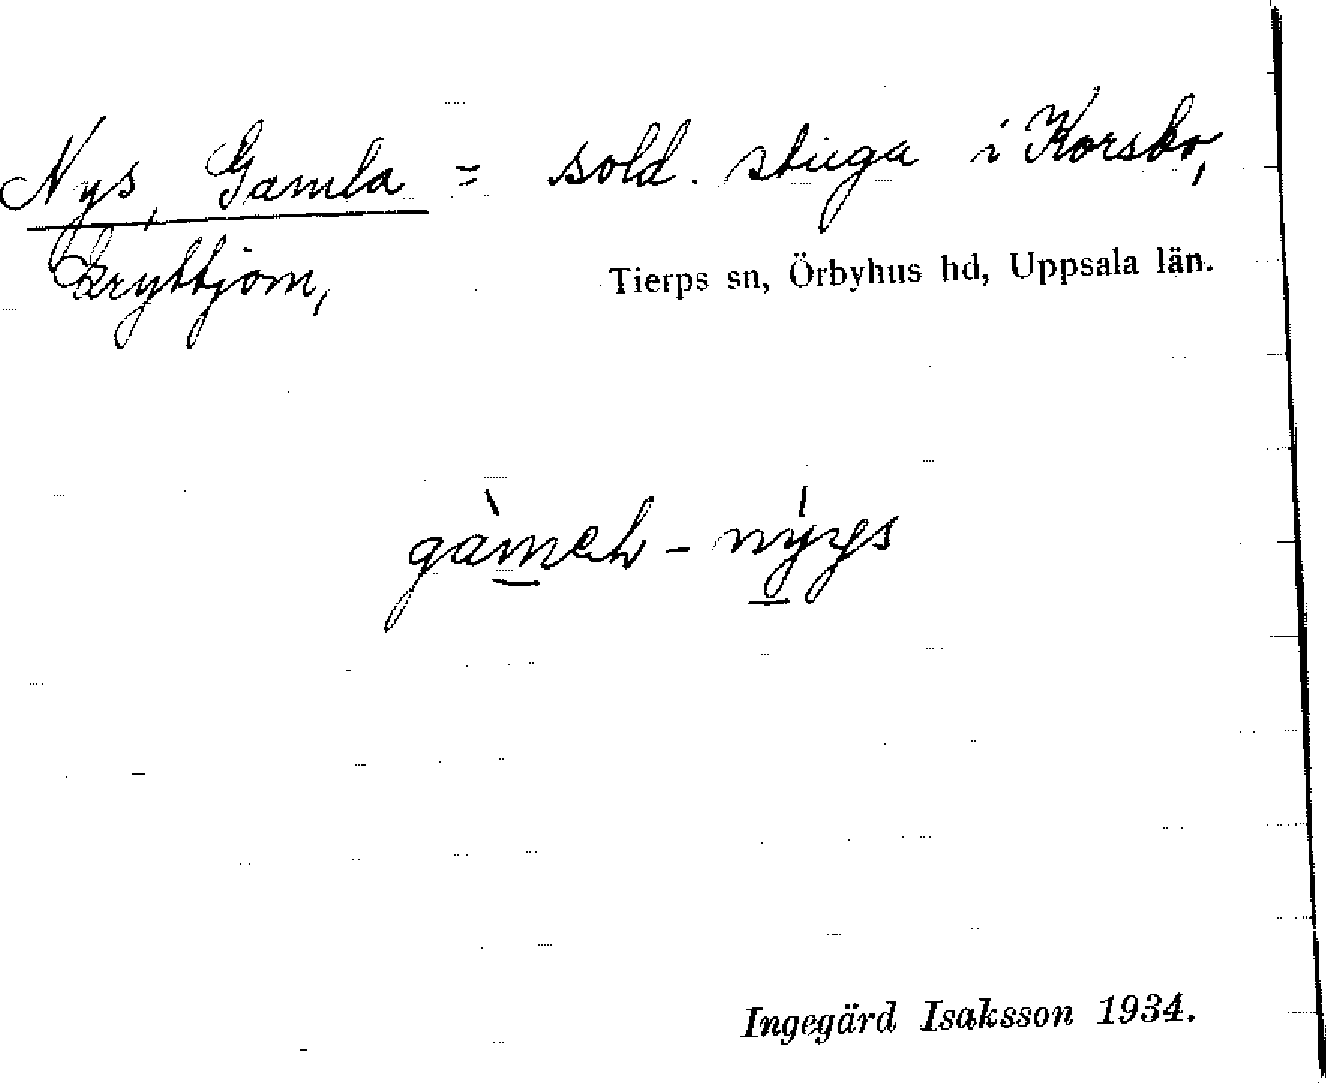 Nys, Gamla = sold. stuga i Korsbo,
Gryttjom,
Tierps sn, Örbyhus hd, Uppsala län.
gàmeh - nýys
Ingegärd Isaksson 1934.